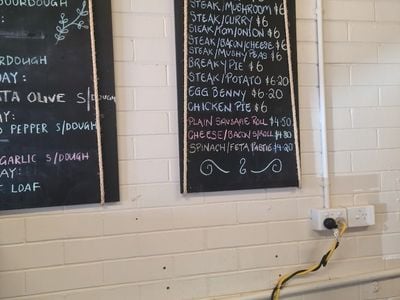 OURDOUGH
URDOUGH
AY:
ATA OLIVE S/DOUGH
AY:
PEPPER S/DOUGH
GARLIC S/DOUGH
AY:
LOAF
STEAK/MUSHROOM $6
STEAK/CURRY $6
STEAK/TOM/ONION $6
STEAK/BACON/CHEESE $6
STEAK/MUSHY PEAS $6
BREAKY PIE $6
STEAK/POTATO $6.20
EGG BENNY $6.20
CHICKEN PIE $6
PLAIN SAUSAGE ROLL $4.50
CHEESE/BACON S/ROLL $4.80
SPINACH/FETA $4.20